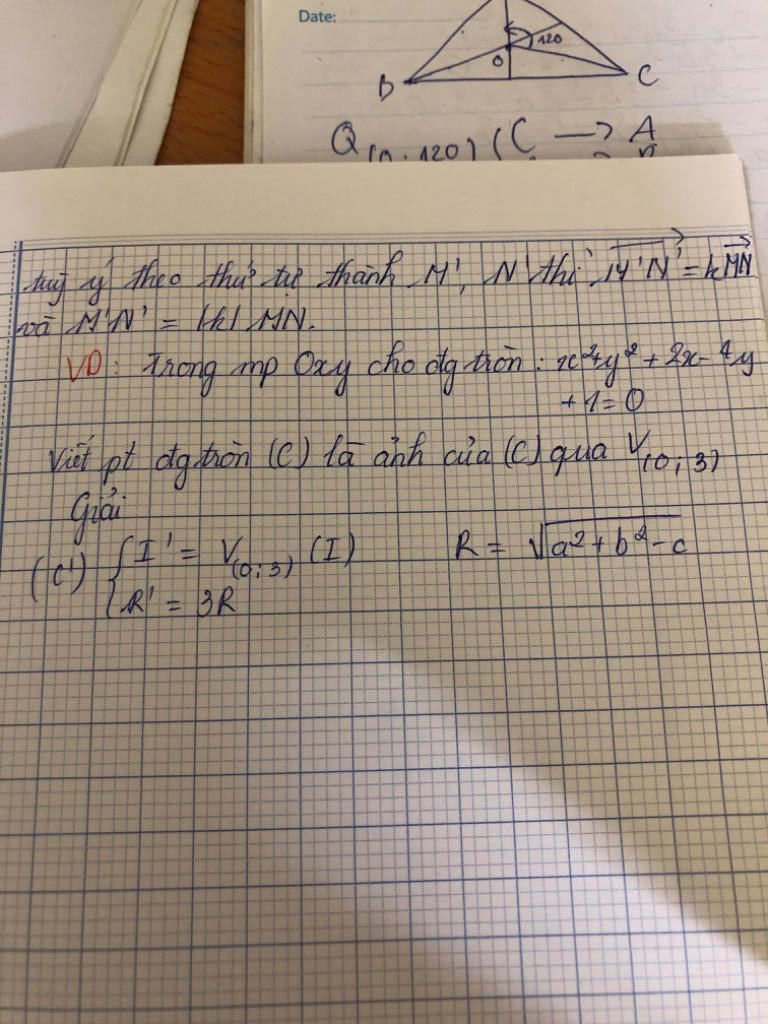 Date:
120
O
B
C
Q(O; 120) (C → A
tuỳ ý theo thứ tự thành M', N' thì M'N' = kMN
và M'N' = |k| MN.
VD: Trong mp Oxy cho đg tròn: x²+y² + 2x - 4y
+ 1 = 0
Viết pt đg tròn (C') là ảnh của (C) qua V(O; 3)
Giải
(C') { I' = V(O; 3) (I) R = √a² + b² - c
R' = 3R